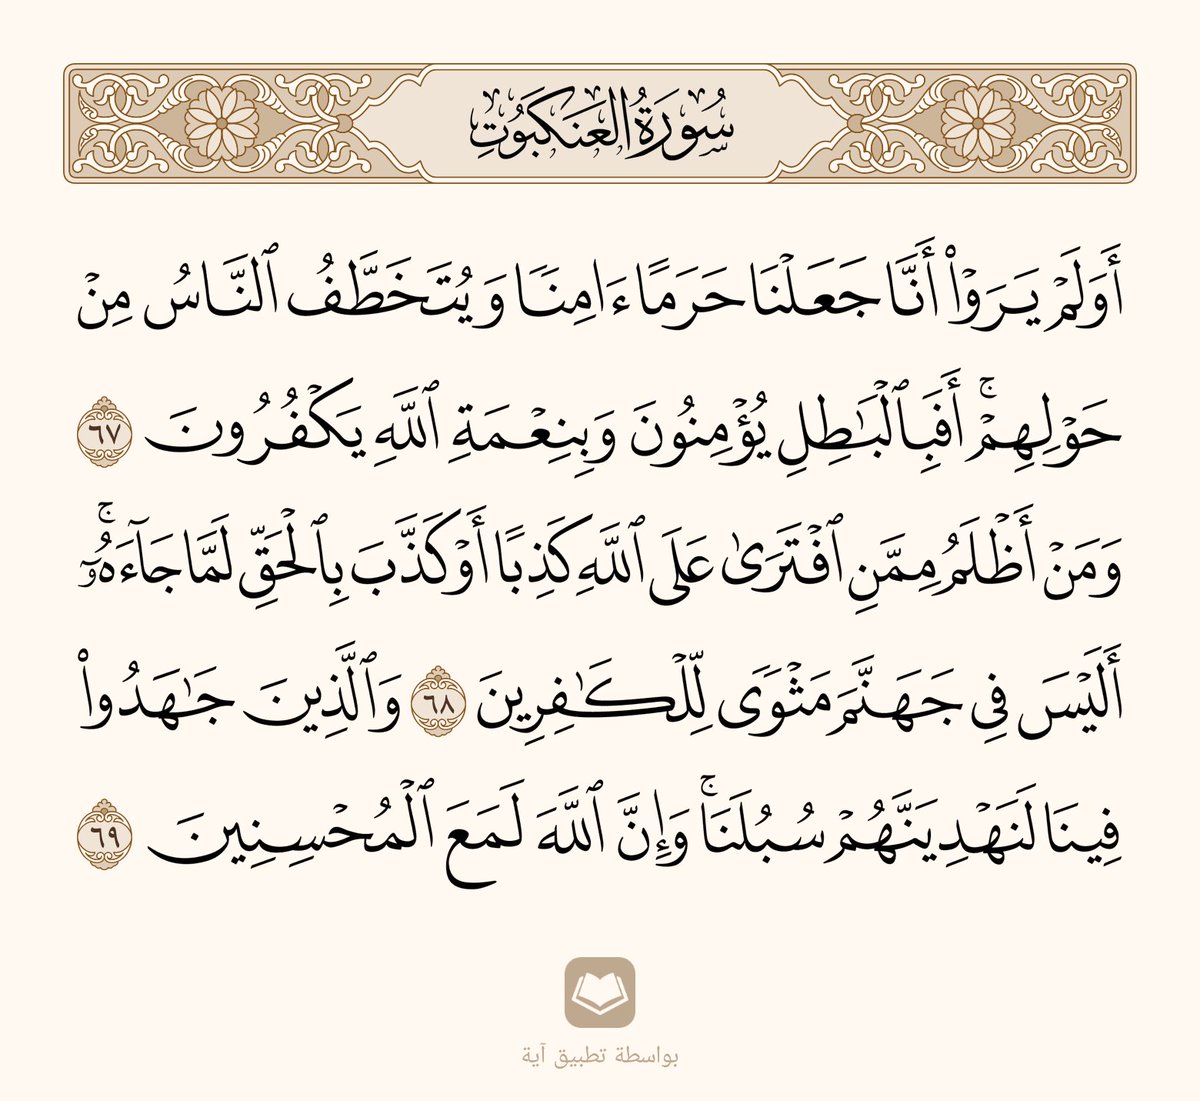 سُورَةُ الْعَنكَبُوتِ
أَوَلَمْ يَرَوْا۟ أَنَّا جَعَلْنَا حَرَمًا ءَامِنًا وَيُتَخَطَّفُ ٱلنَّاسُ مِنْ
حَوْلِهِمْ ۚ أَفَبِٱلْبَـٰطِلِ يُؤْمِنُونَ وَبِنِعْمَةِ ٱللَّهِ يَكْفُرُونَ ٦٧
وَمَنْ أَظْلَمُ مِمَّنِ ٱفْتَرَىٰ عَلَى ٱللَّهِ كَذِبًا أَوْ كَذَّبَ بِٱلْحَقِّ لَمَّا جَآءَهُۥٓ ۚ
أَلَيْسَ فِى جَهَنَّمَ مَثْوًى لِّلْكَـٰفِرِينَ ٦٨ وَٱلَّذِينَ جَـٰهَدُوا۟
فِينَا لَنَهْدِيَنَّهُمْ سُبُلَنَا ۚ وَإِنَّ ٱللَّهَ لَمَعَ ٱلْمُحْسِنِينَ ٦٩
بواسطة تطبيق آية